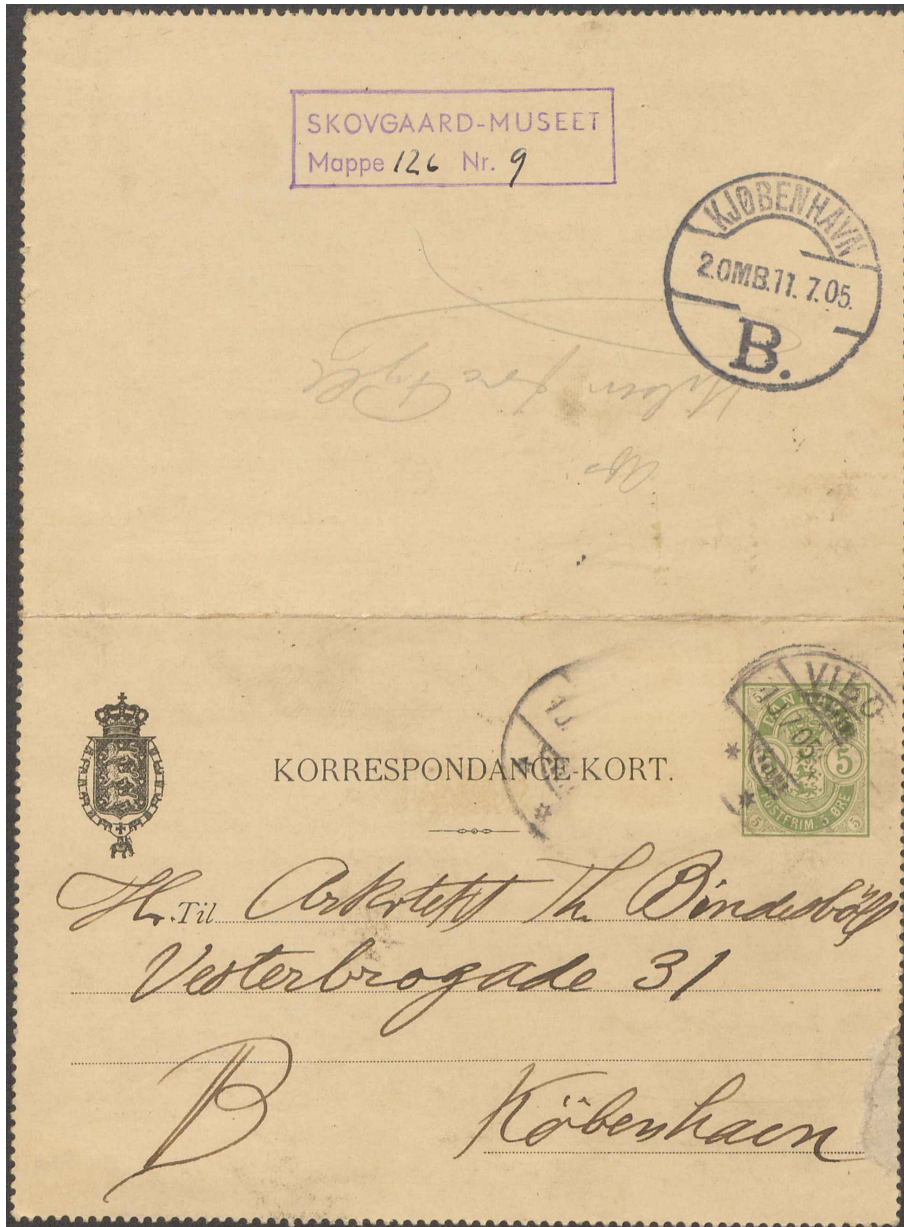 SKOVGAARD-MUSEET
Mappe 126 Nr. 9
KJØBENHAVN
2.OMB.11.7.05.
B.
VIBO
KORRESPONDANCE-KORT.
5
POSTFRIM. 5 ØRE
Hr. Til Arkitekt Th. Bindesböll
Vesterbrogade 31
B Köbenhavn